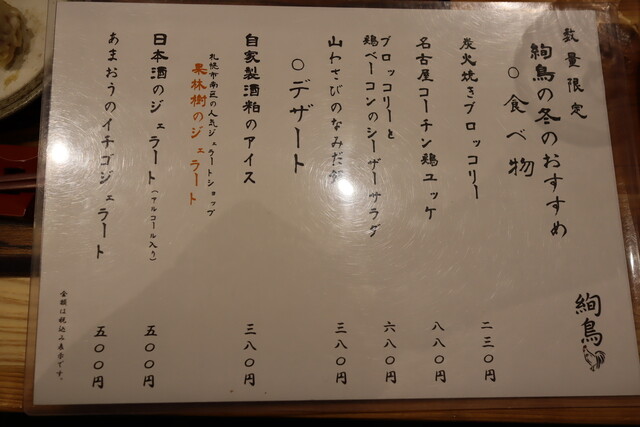 数量限定
絢鳥の冬のおすすめ
○食べ物
炭火焼きブロッコリー
二三〇円
名古屋コーチン鶏ユッケ
八八〇円
ブロッコリーと
鶏ベーコンのシーザーサラダ
六八〇円
山わさびのなみだ
三八〇円
○デザート
自家製酒粕のアイス
三八〇円
札幌市南区の人気ジェラートショップ
果林樹のジェラート
日本酒のジェラート(アルコール入り)
五〇〇円
あまおうのイチゴジェラート
五〇〇円
金額は税込み表示です。
絢鳥